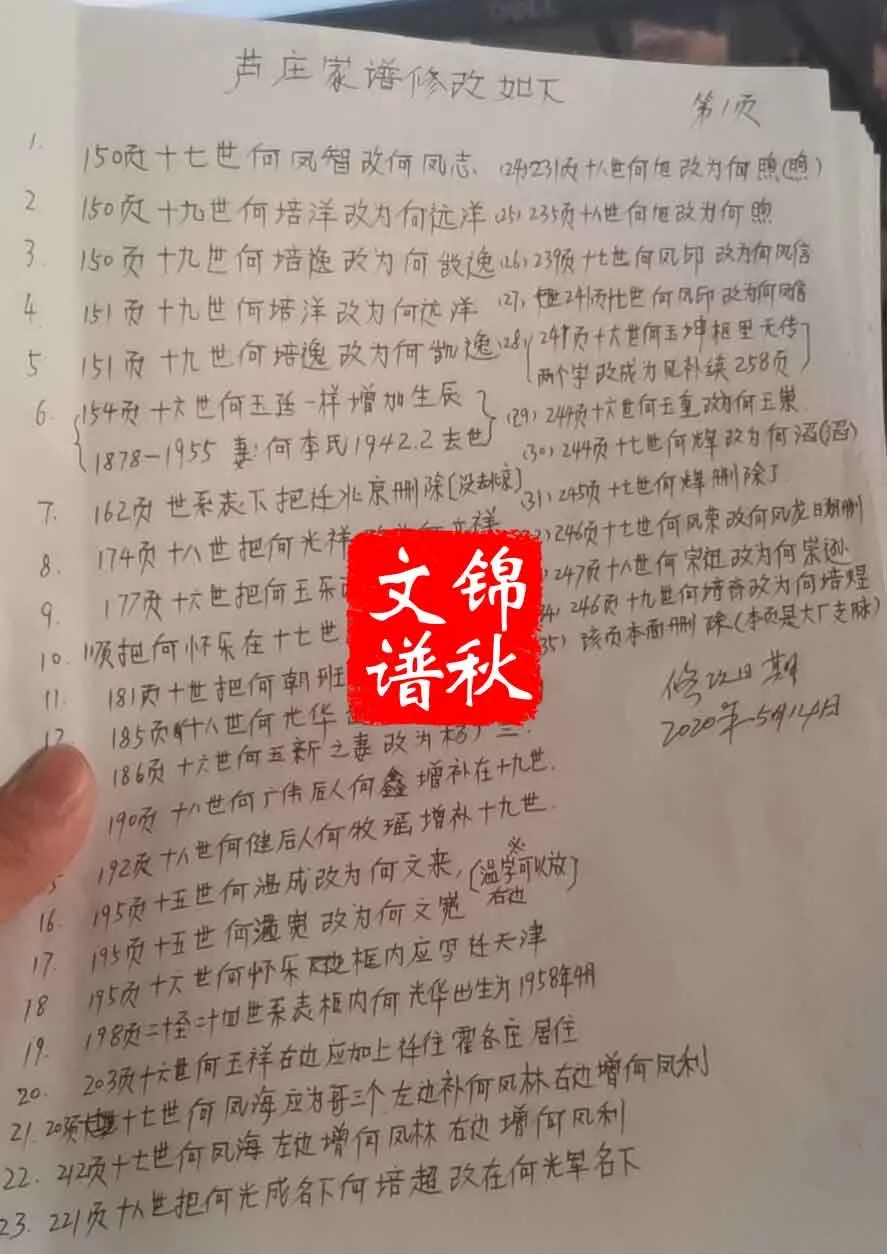 DELL
芦庄家谱修改如下
第1页
1. 150页十七世何凤智改何凤志.
2 150页十九世何培洋改为何远洋
3. 150页十九世何培逸改为何凯逸
4 151页十九世何培洋改为何远洋
5 151页十九世何培逸改为何凯逸
6. 154页十六世何玉廷一样增加生辰
1878-1955 妻:何李氏1942.2去世
7. 162页世系表下把迁北京删除[没去北京]
8. 174页十八世把何光祥
9. 177页十六世把何玉乐
10. 把何怀乐在十七世
11. 181页十世把何朝班
12 185页十八世何光华
186页十六世何五新之妻改为杨
190页十八世何广伟后人何鑫增补在十九世.
192页十八世何健后人何牧瑶增补十九世.
16. 195页十五世何温成改为何文来,[温字可以放]
右边
17. 195页十五世何温宽改为何文宽
18 195页十六世何怀乐边框内应写迁天津
19. 198页二十至二十四世系表框内何光华出生为1958年4月
20. 203页十六世何玉祥右边应加上迁住霍各庄居住
21. 十七世何凤海应为哥三个左边补何凤林右边增何凤利
22. 212页十七世何凤海左边增何凤林右边增何凤利
23. 221页十八世把何光成名下何培超改在何光军名下
(24) 231页十八世何旭改为何煦(煦)
(25) 235页十八世何旭改为何煦
(26) 239页十七世何凤印改为何凤信
(27) 241页十七世何凤印改为何凤信
(28) 241页十六世何玉坤框里无传
两个字改成为见补续258页
(29) 244页十六世何玉重改为何玉崇
(30) 244页十七世何烽改为何滔(滔)
(31) 245页十七世何烽删除了
246页十七世何凤荣改何凤龙日期删
247页十八世何宗逊改为何崇逊
246页十九世何培奇改为何培煜
35) 该页本面删除(本页是大厂支脉)
修改日期
2020年5月14日
文锦
谱秋